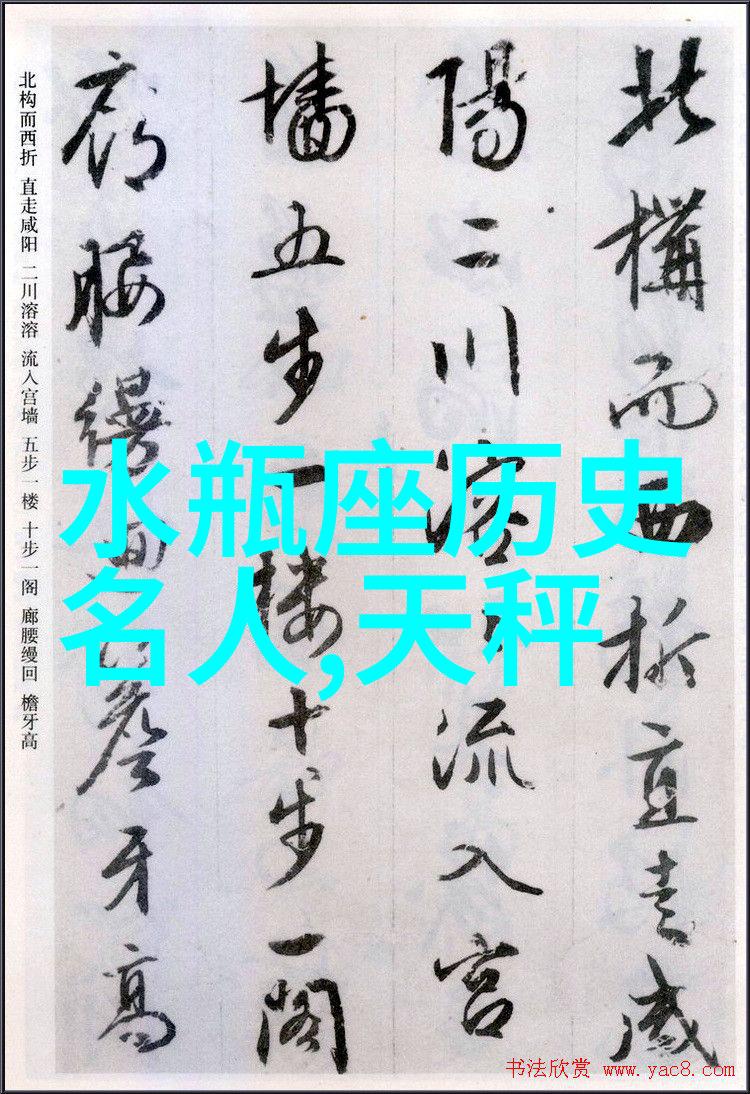 北構而西折直走咸
陽二川溶々流入宫
墙五步一楼十步一阁
廊腰缦回檐牙高
北构而西折 直走咸阳 二川溶溶 流入宫墙 五步一楼 十步一阁 廊腰缦回 檐牙高
水瓶座历史
名人,天秤
书法欣赏 www.yac8.com